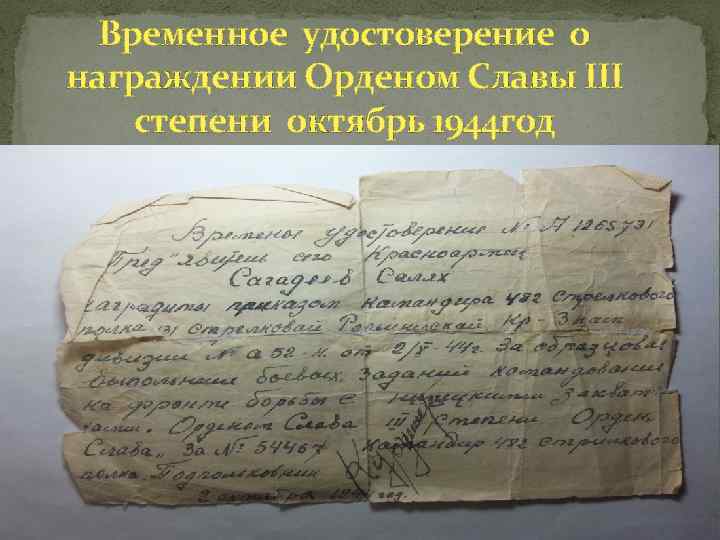 Временное удостоверение о
награждении Орденом Славы III
степени октябрь 1944год
Временое удостоверение № А 1265731
Пред"явитель сего Красноармец
Сагадеев Саллях
наградиты приказом командира 482 стрелкового
полка 131 стрелковай Ропшинскай Кр-Знам
дивизии № 052-н. от 2/X-44г. За образцовое
выполнение боевых заданий командования
на фронте борьбы с немецкими Захват-
чиками. Орденом Слава III степени Орден
Слава„ За № 54467 командир 482 стрилкового
полка. Подполковник
2 октября 1944 год.